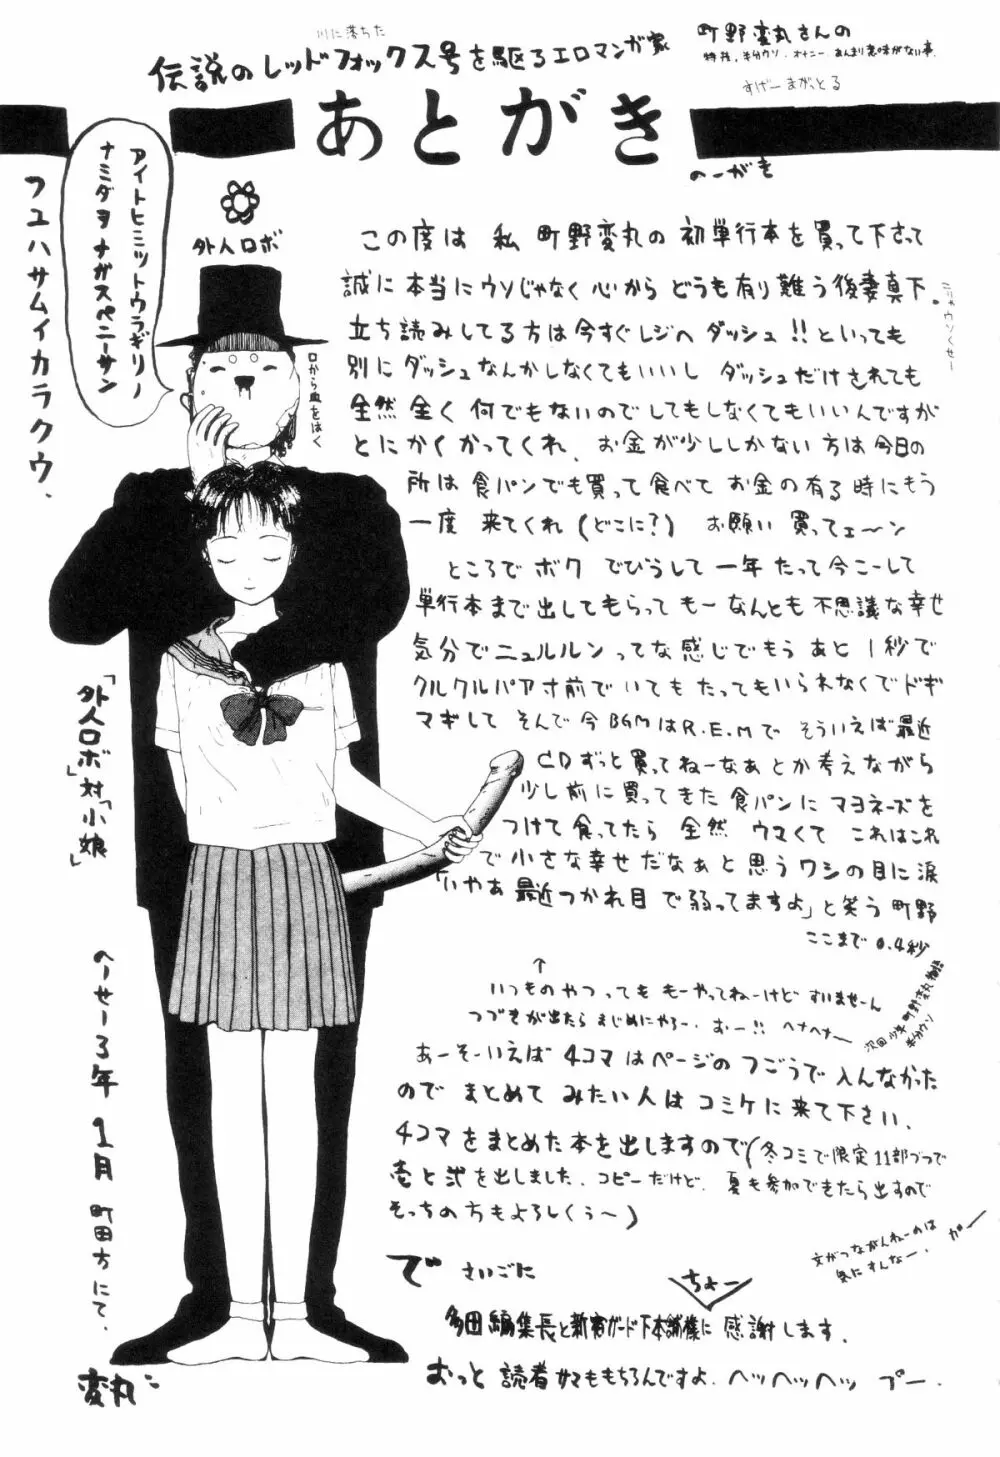 川に落ちた
伝説のレッドフォックス号を駆るエロマンガ家
町野変丸さんの
特技、半分ウソ、オナニー、あんまり意味がない事、
すげーまがっとる
あとがき
のーがき
アイトヒミットウラギリノ
ナミダヲナガスペニーサン
フユハサムイカラクウ、
外人ロボ
口から血をはく
この度は 私 町野変丸の 初単行本を買って下さって
誠に 本当に ウソじゃなく 心から どうも有り難う後妻真下。
こりゃウソくせー
立ち読みしてる方は今すぐレジへ ダッシュ!!といっても
別に ダッシュなんかしなくてもいいし ダッシュだけされても
全然 全く 何でもないのでしてもしなくてもいいんですが
とにかくかってくれ、 お金が少ししかない方は今日の
所は食パンでも買って食べて お金の有る時にもう
一度 来てくれ(どこに?) お願い 買ってェ〜ン
ところで ボク でびうして一年 たって今こーして
単行本まで出してもらって もーなんとも不思議な幸せ
気分でニュルルン ってな感じでもう あと 1秒で
クルクルパア寸前で いても たってもいられなくてドギ
マギして そんで 今BGMはR.E.Mで そういえば最近
CDずっと買ってねーなぁとか考えながら
少し前に買ってきた食パンにマヨネーズを
つけて食ってたら 全然 ウマくて これはこれ
で小さな幸せだなぁと思うワシの目に涙
「いやあ最近つかれ目で弱ってますよ」と笑う町野
ここまで0.4秒
↑
いつものやつっても もーやってねーけど すいません
つづきが出たら まじめにやろー、おー!! ヘナヘナー
次回 少年町野変丸物語
半分ウソ
あーそーいえば 4コマはページのつごうで入んなかった
ので まとめて みたい人は コミケに来て下さい、
4コマをまとめた本を出しますので(冬コミで限定11部づつで
壱と弐を出しました、コピーだけど、夏も参加できたら出すので
そっちの方もよろしくぅ〜)
文がつながんねーのは
気にすんなー、ガー
で さいごに
ちょー
多田編集長と新宿ガード下本舗様に 感謝します、
おっと 読者サマももちろんですよ、ヘッヘッヘッ プー、
「外人ロボ」対「小娘」
へーせー3年 1月 町田市にて、
変丸